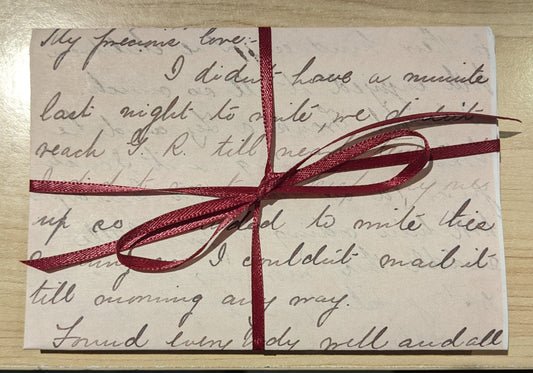 My precious love:-
I didn't have a minute
last night to write we didn't
reach G. R. till
I didn't
up so to write this
I couldn't mail it
till morning any way.
Found everybody well and all